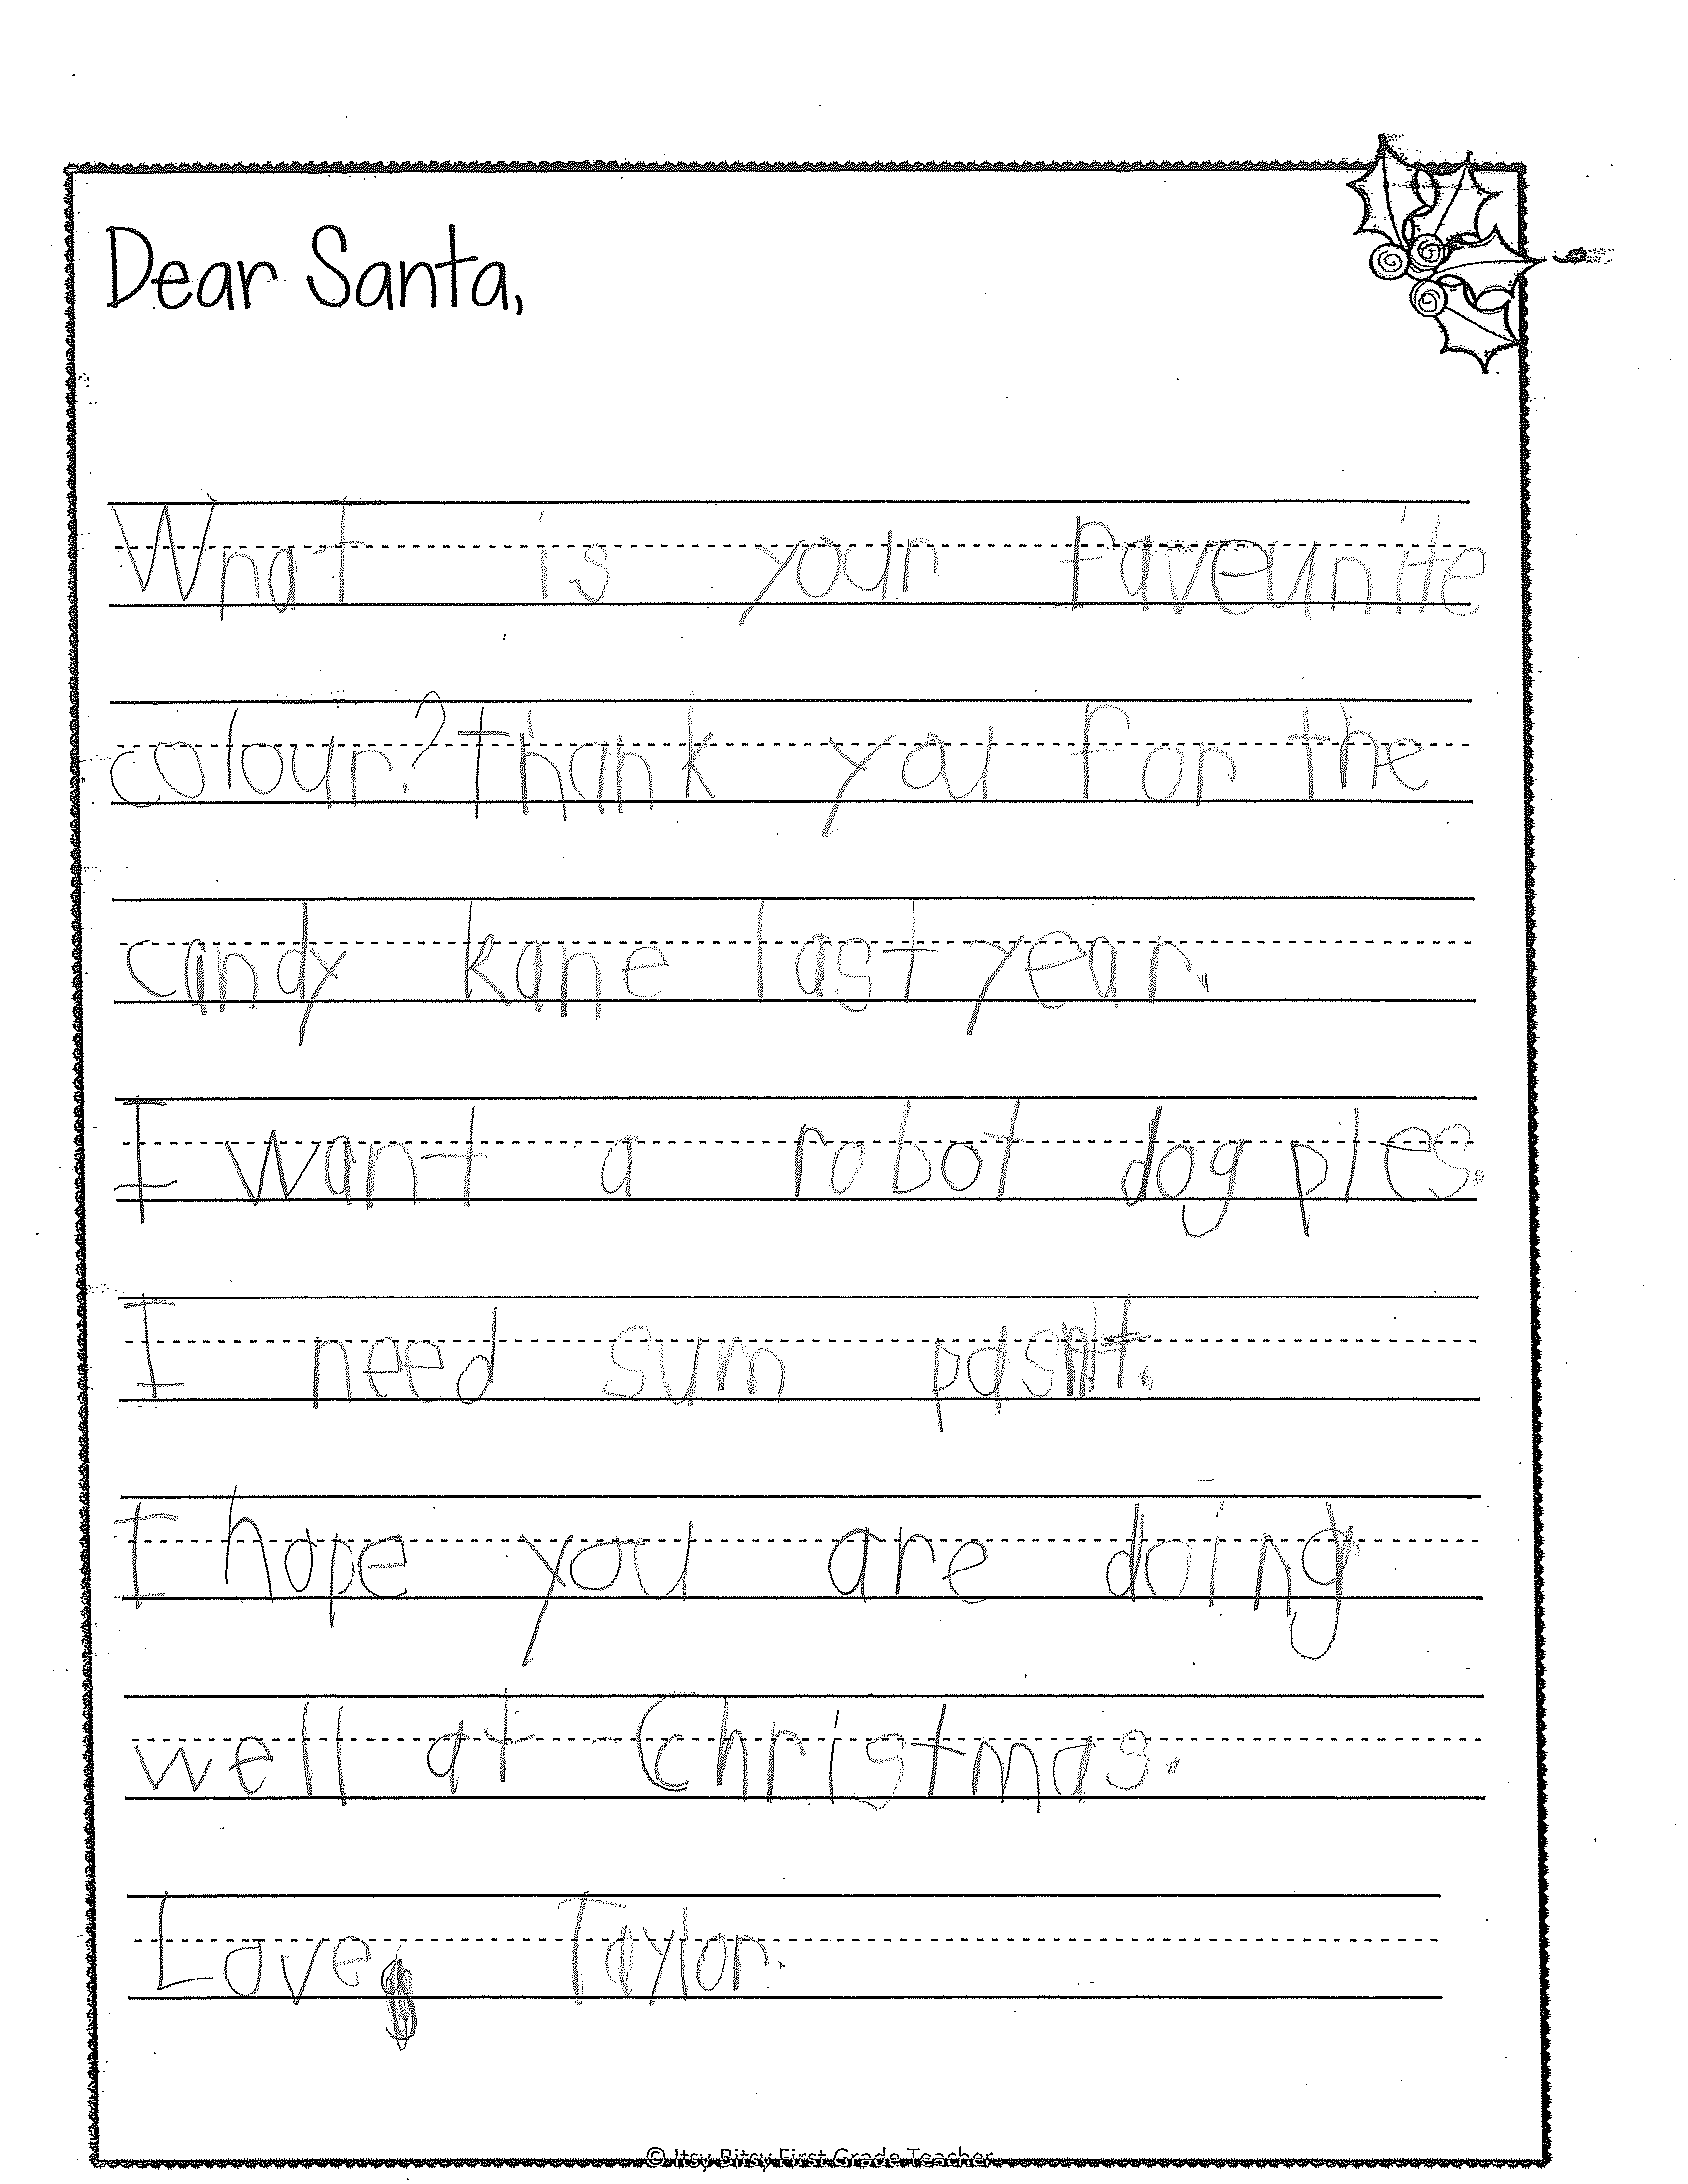 Dear Santa,
What is your faveurite
colour? thank you for the
candy kane last year.
I want a robot dog ples.
I need sum
I hope you are doing
well at Christmas.
Love, Taylor.
© Itsy Bitsy First Grade Teacher